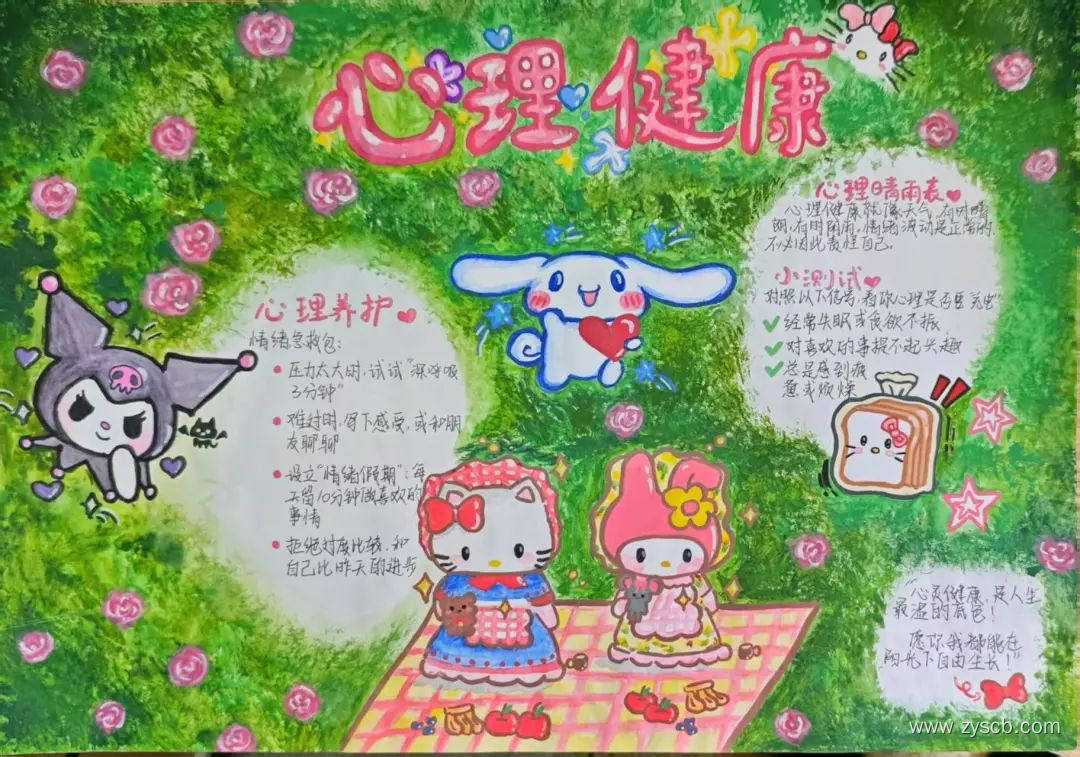 心理健康
心理养护
情绪急救包:
压力太大时,试试"深呼吸
3分钟"
难过时,写下感受,或和朋
友聊聊
设立"情绪假期":每
天留10分钟做喜欢的
事情
拒绝过度比较,和
自己比昨天的进步
心理晴雨表
心理健康就像天气,有时晴
朗,有时阴雨,情绪波动是正常的,
不必因此责怪自己。
小测试
对照以下信号,看你心理是否要"关电"
经常失眠或食欲不振
对喜欢的事提不起兴趣
总是感到疲
惫或烦躁
"心灵健康,是人生
最温的底色!
愿你我都能在
阳光下自由生长!"
www.zyscb.com